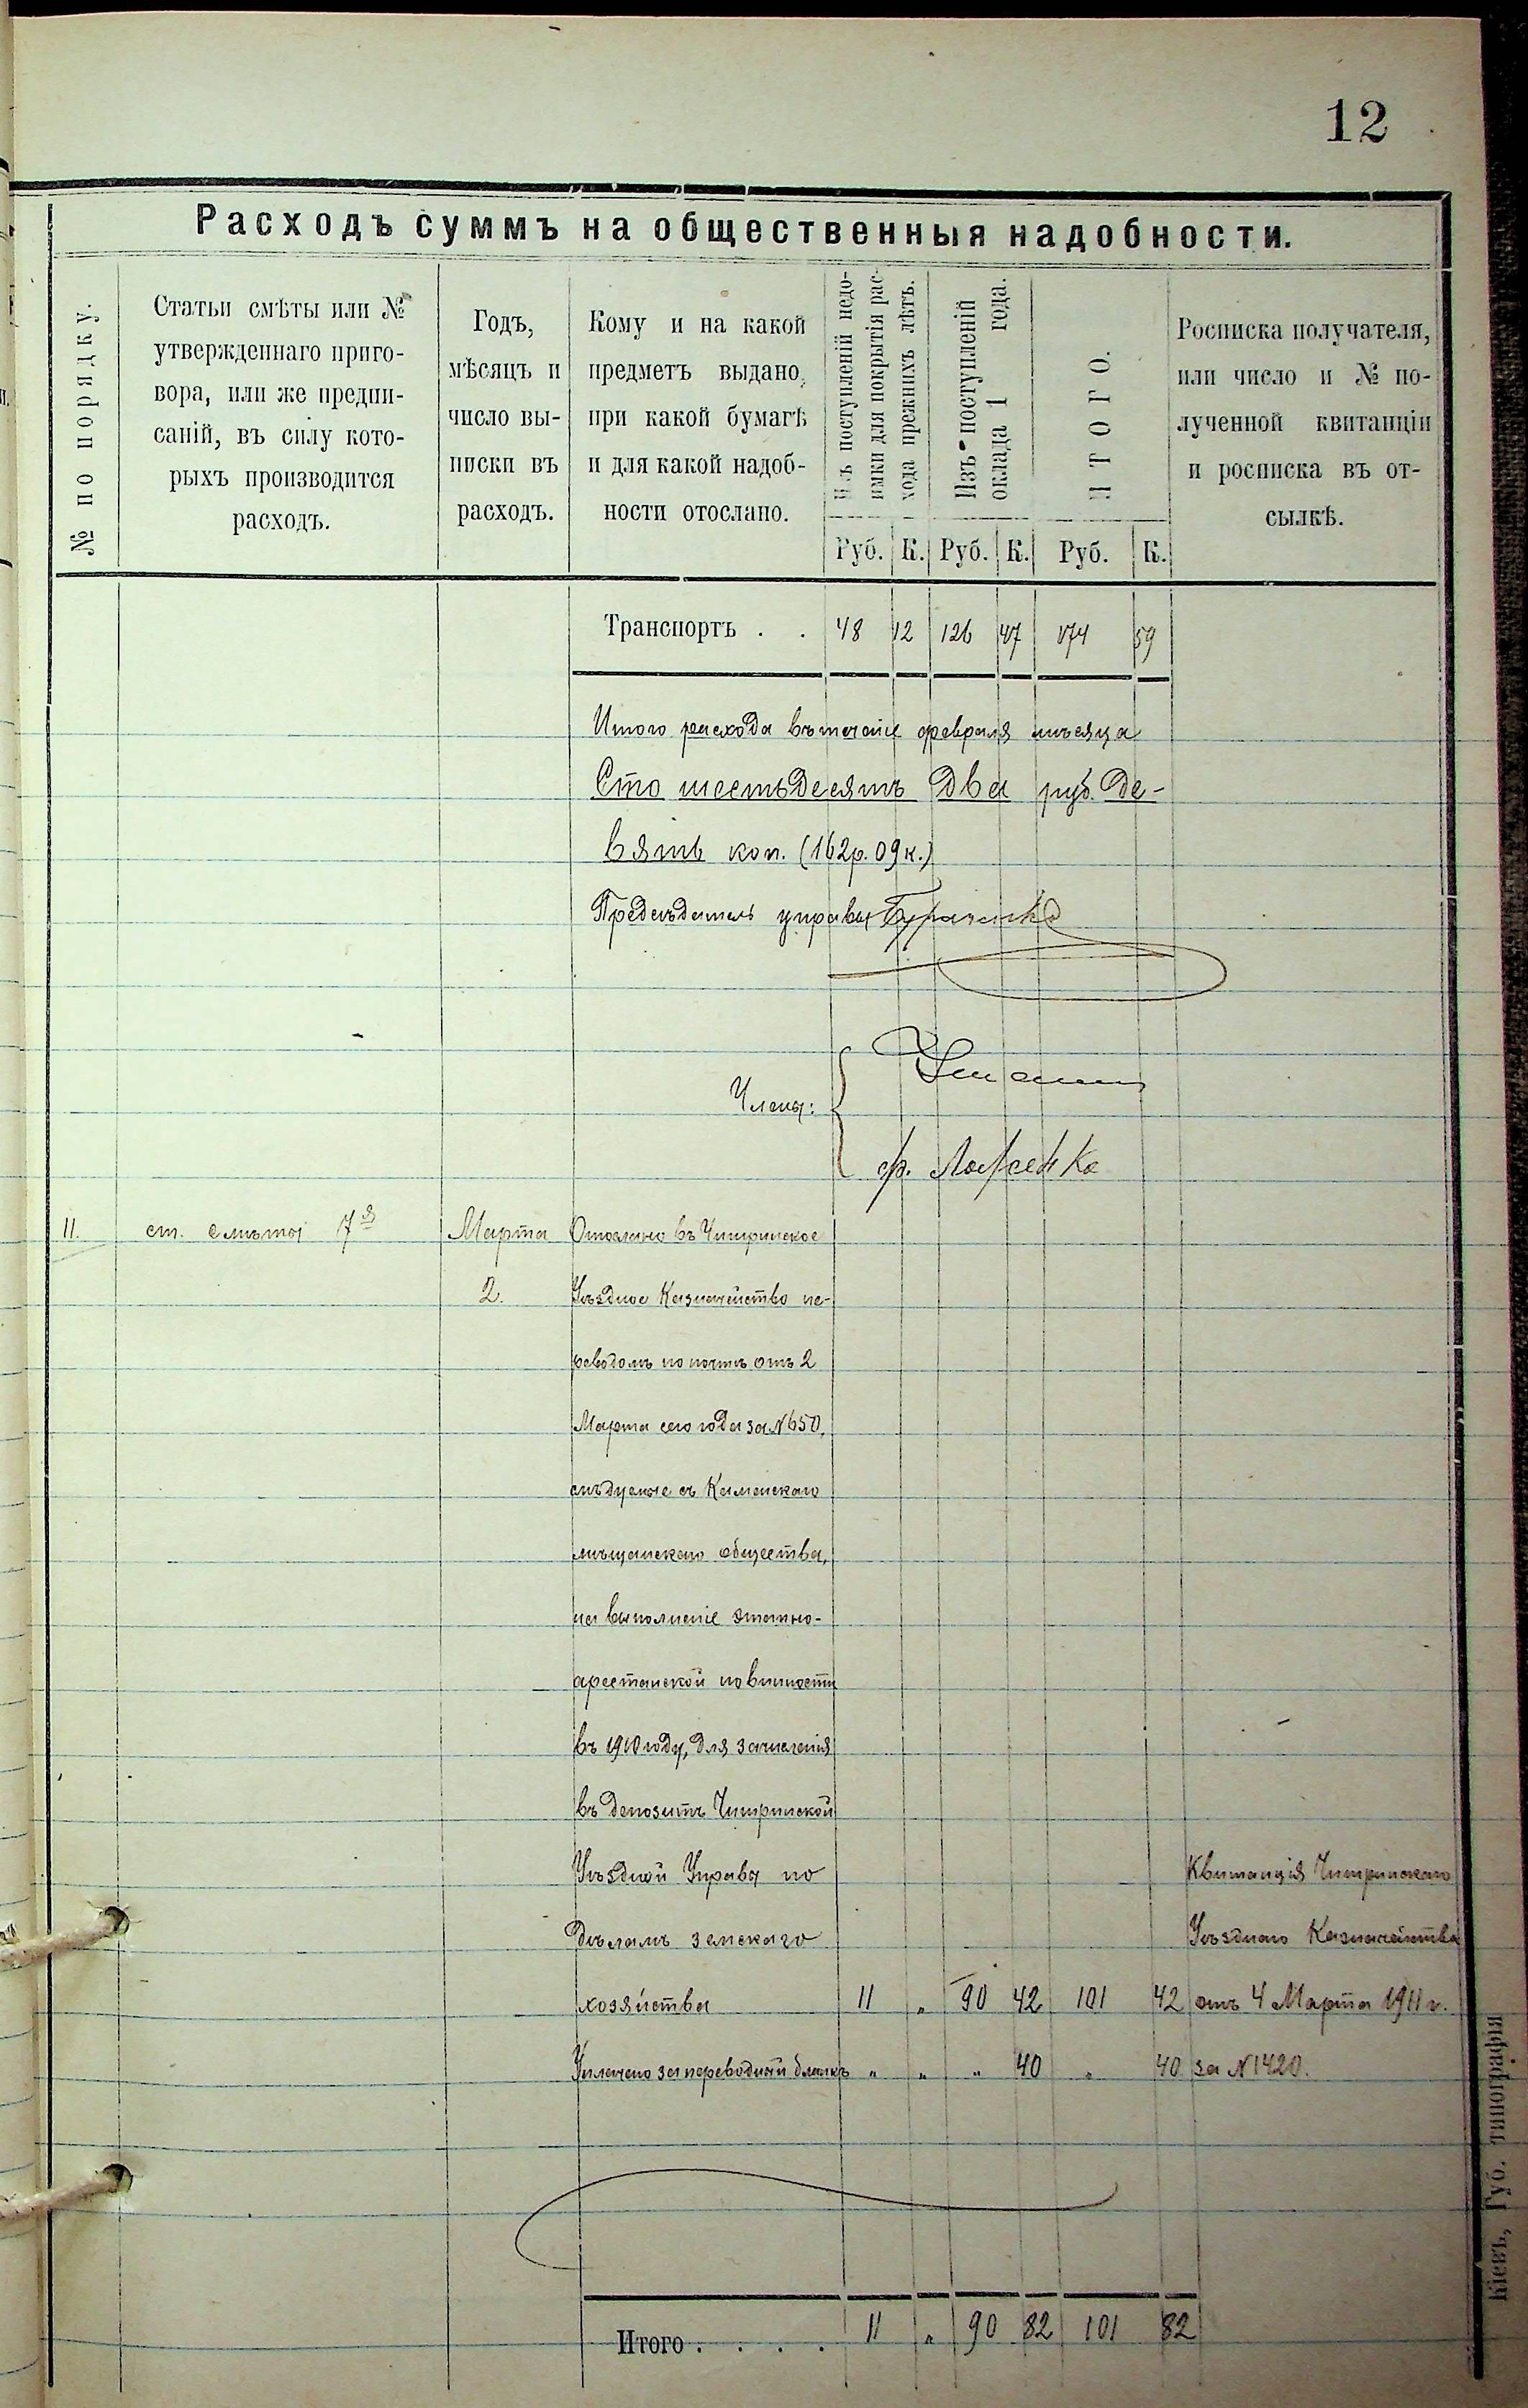 12
Расходъ суммъ на общественныя надобности.
№ по порядку.
Статьи смѣты или №
утвержденнаго приго-
вора, или же предпи-
саній, въ силу кото-
рыхъ производится
расходъ.
Годъ,
мѣсяцъ и
число вы-
писки въ
расходъ.
Кому и на какой
предметъ выдано,
при какой бумагѣ
и для какой надоб-
ности отослано.
Изъ поступленій недо-
имки для покрытія рас-
хода прежнихъ лѣтъ.
Изъ поступленій
оклада 1 года.
ИТОГО.
Росписка получателя,
или число и № по-
лученной квитанціи
и росписка въ от-
сылкѣ.
Руб. К. Руб. К. Руб. К.
Транспортъ . . 48 12 126 47 174 59
Итого расхода въ теченіе февраля мѣсяца
Сто шестьдесятъ два руб. де-
вять коп. (162р. 09к.)
Предсѣдатель управы
Члены:
11. ст. смѣты 7я Марта Отослано въ Чигиринское
2. Уѣздное Казначейство пе-
реводомъ по почтѣ отъ 2
Марта сего года за №650,
слѣдуемые съ Каменскаго
мѣщанскаго общества,
на выполненіе этапно-
арестанской повинности
въ 1910 году, для зачисленія
въ депозитъ Чигиринской
Уѣздной Управы по Квитанція Чигиринскаго
дѣламъ земскаго Уѣзднаго Казначейства
хозяйства 11 „ 90 42 101 42 отъ 4 Марта 1911 г.
Уплачено за переводный бланкъ „ „ „ 40 „ 40 за №1420.
Итого . . . . 11 „ 90 82 101 82
Кіевъ, Губ. типографія